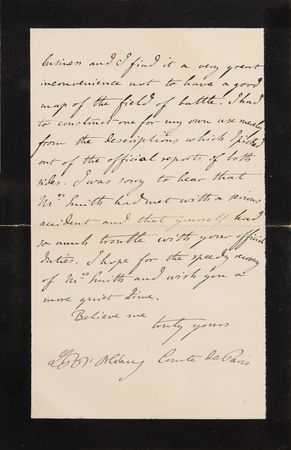 business and I find it a very great
inconvenience not to have a good
map of the field of battle. I had
to construct one for my own use merely
from the descriptions which I picked
out of the official reports of both
sides. I was sorry to hear that
Mrs Smith had met with a serious
accident and that yourself had
so much trouble with your official
duties. I hope for the speedy recovery
of Mrs Smith and wish you a
more quiet time.
Believe me
truly yours
Comte de Paris